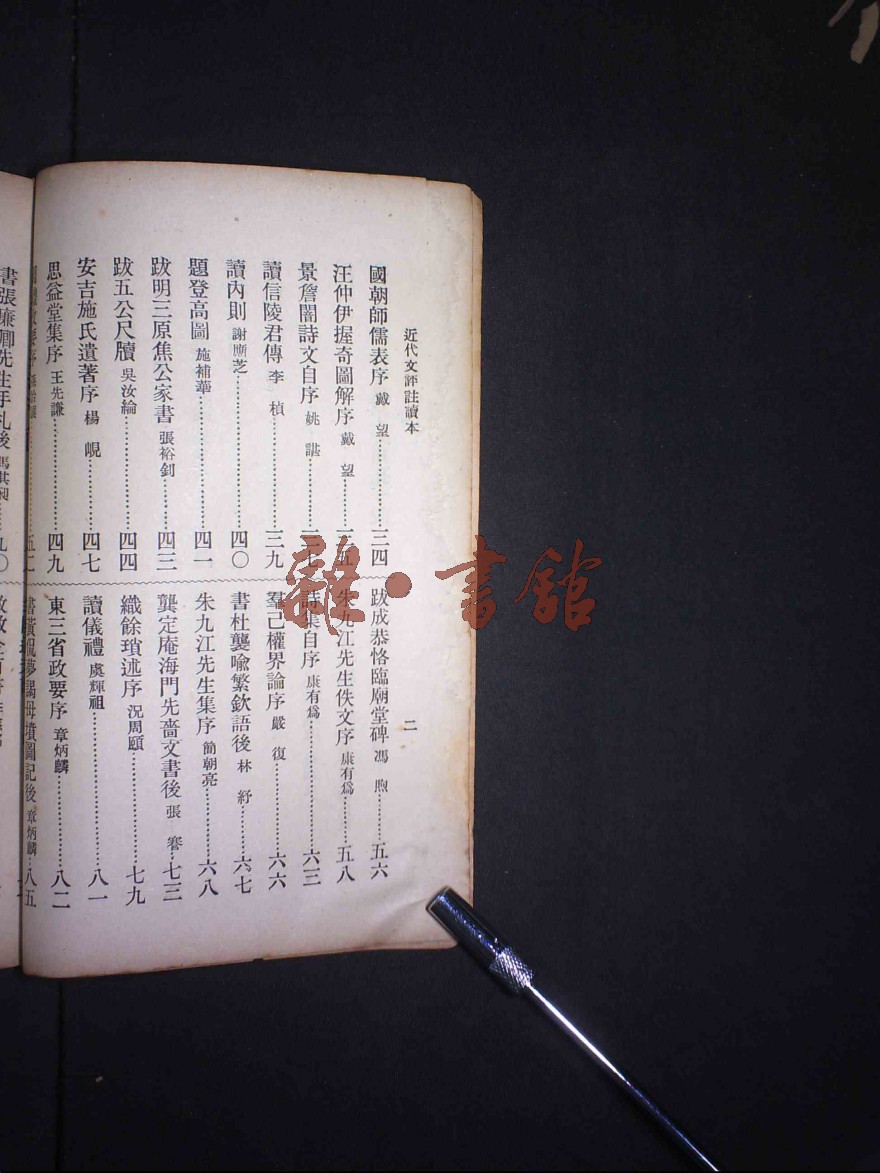 近代文評註讀本
二
國朝師儒表序 戴望…………三四
汪仲伊握奇圖解序 戴望……三五
景詹闇詩文自序 姚諶………三七
讀信陵君傳 李楨……………三九
讀內則 謝應芝………………四〇
題登高圖 施補華……………四一
跋明三原焦公家書 張裕釗…四三
跋五公尺牘 吳汝綸…………四四
安吉施氏遺著序 楊峴………四七
思益堂集序 王先謙…………四九
跋成恭恪臨廟堂碑 馮煦……五六
朱九江先生佚文序 康有爲…五八
詩集自序 康有爲……………六三
羣己權界論序 嚴復…………六六
書杜襲喩繁欽語後 林紓……六七
朱九江先生集序 簡朝亮……六八
龔定庵海門先嗇文書後 張謇…七三
織餘瑣述序 況周頤…………七九
讀儀禮 虞輝祖………………八一
東三省政要序 章炳麟………八二
書黃侃夢謁母墳圖記後 章炳麟…八五
書張廉卿先生手札後 馬其昶…九〇
雜·書館